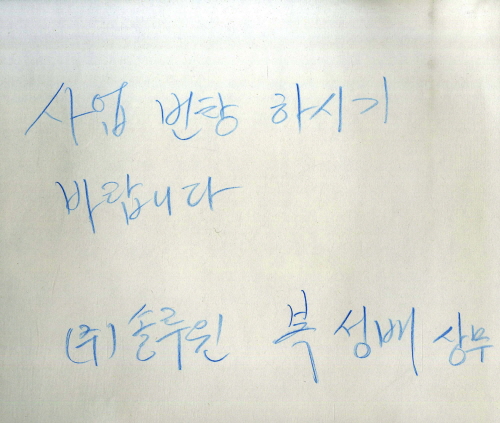 사업 번창 하시기
바랍니다
(주)솔루윈 복성배 상무